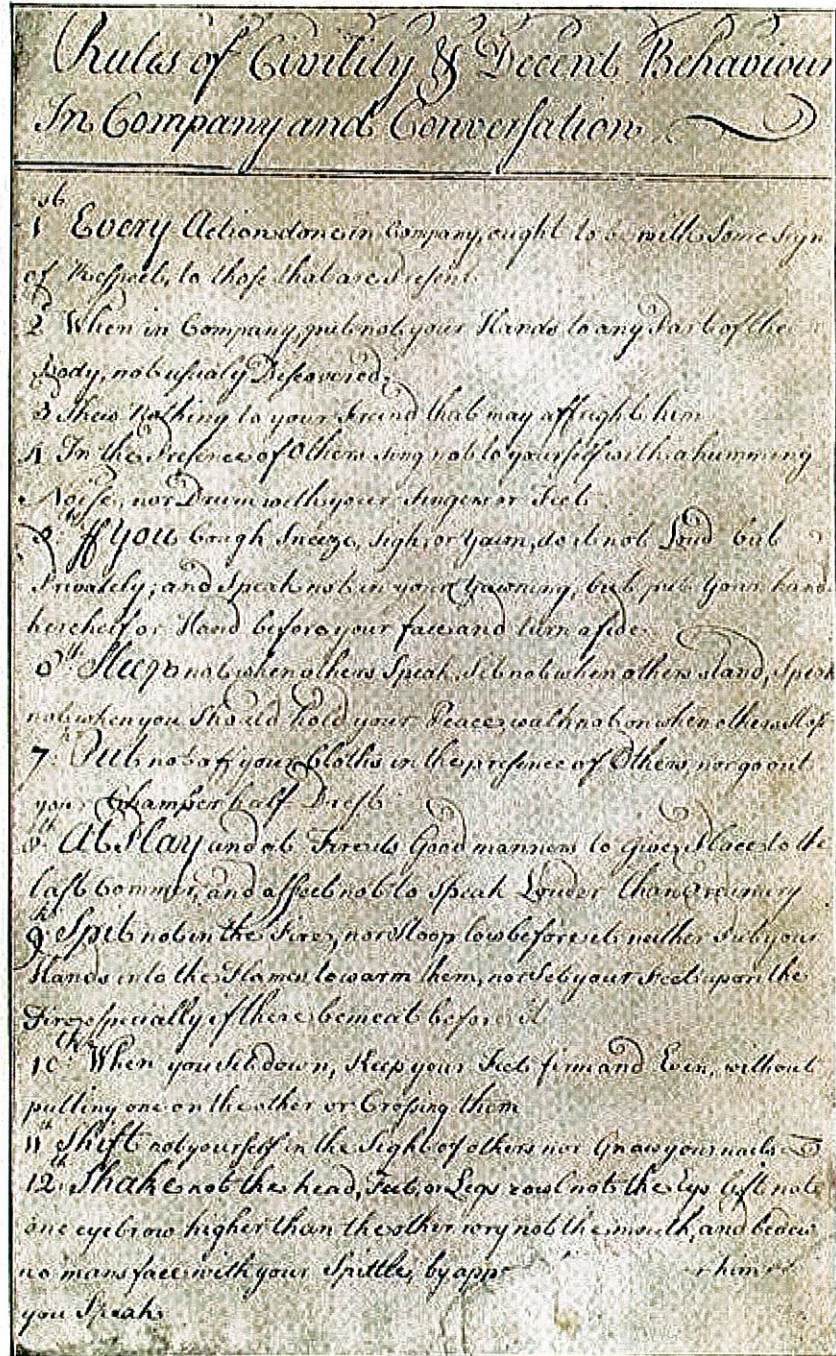 Rules of Civility & Decent Behaviour
In Company and Conversation
1st Every Action done in Company, ought to be with Some Sign
of Respect, to those that are Present.
2d When in Company, put not your Hands to any Part of the
Body, not usualy Discovered.
3 Shew Nothing to your Freind that may affright him
4 In the Presence of Others Sing not to yourself with a humming
Noise, nor Drum with your Fingers or Feet
5th If You Cough, Sneeze, Sigh, or Yawn, do it not Loud but
Privately; and Speak not in your Yawning, but put Your hand
kercheif or Hand before your face and turn aside
6th Sleep not when others Speak, Sit not when others stand, Speak
not when you Should hold your Peace, walk not on when others Stop
7th Put not off your Cloths in the presence of Others, nor go out
your Chamber half Drest
8th At Play and at Fire its Good manners to Give Place to the
last Commer, and affect not to Speak Louder than Ordinary
9th Spit not in the Fire, nor Stoop low before it neither Put your
Hands into the Flames to warm them, nor Set your Feet upon the
Fire especially if there be meat before it
10th When you Sit down, Keep your Feet firm and Even, without
putting one on the other or Crossing them
11th Shift not yourself in the Sight of others nor Gnaw your nails
12th Shake not the head, Feet, or Legs rowl not the Eys lift not
one eyebrow higher than the other wry not the mouth, and bedew
no mans face with your Spittle, by app r him
you Speak